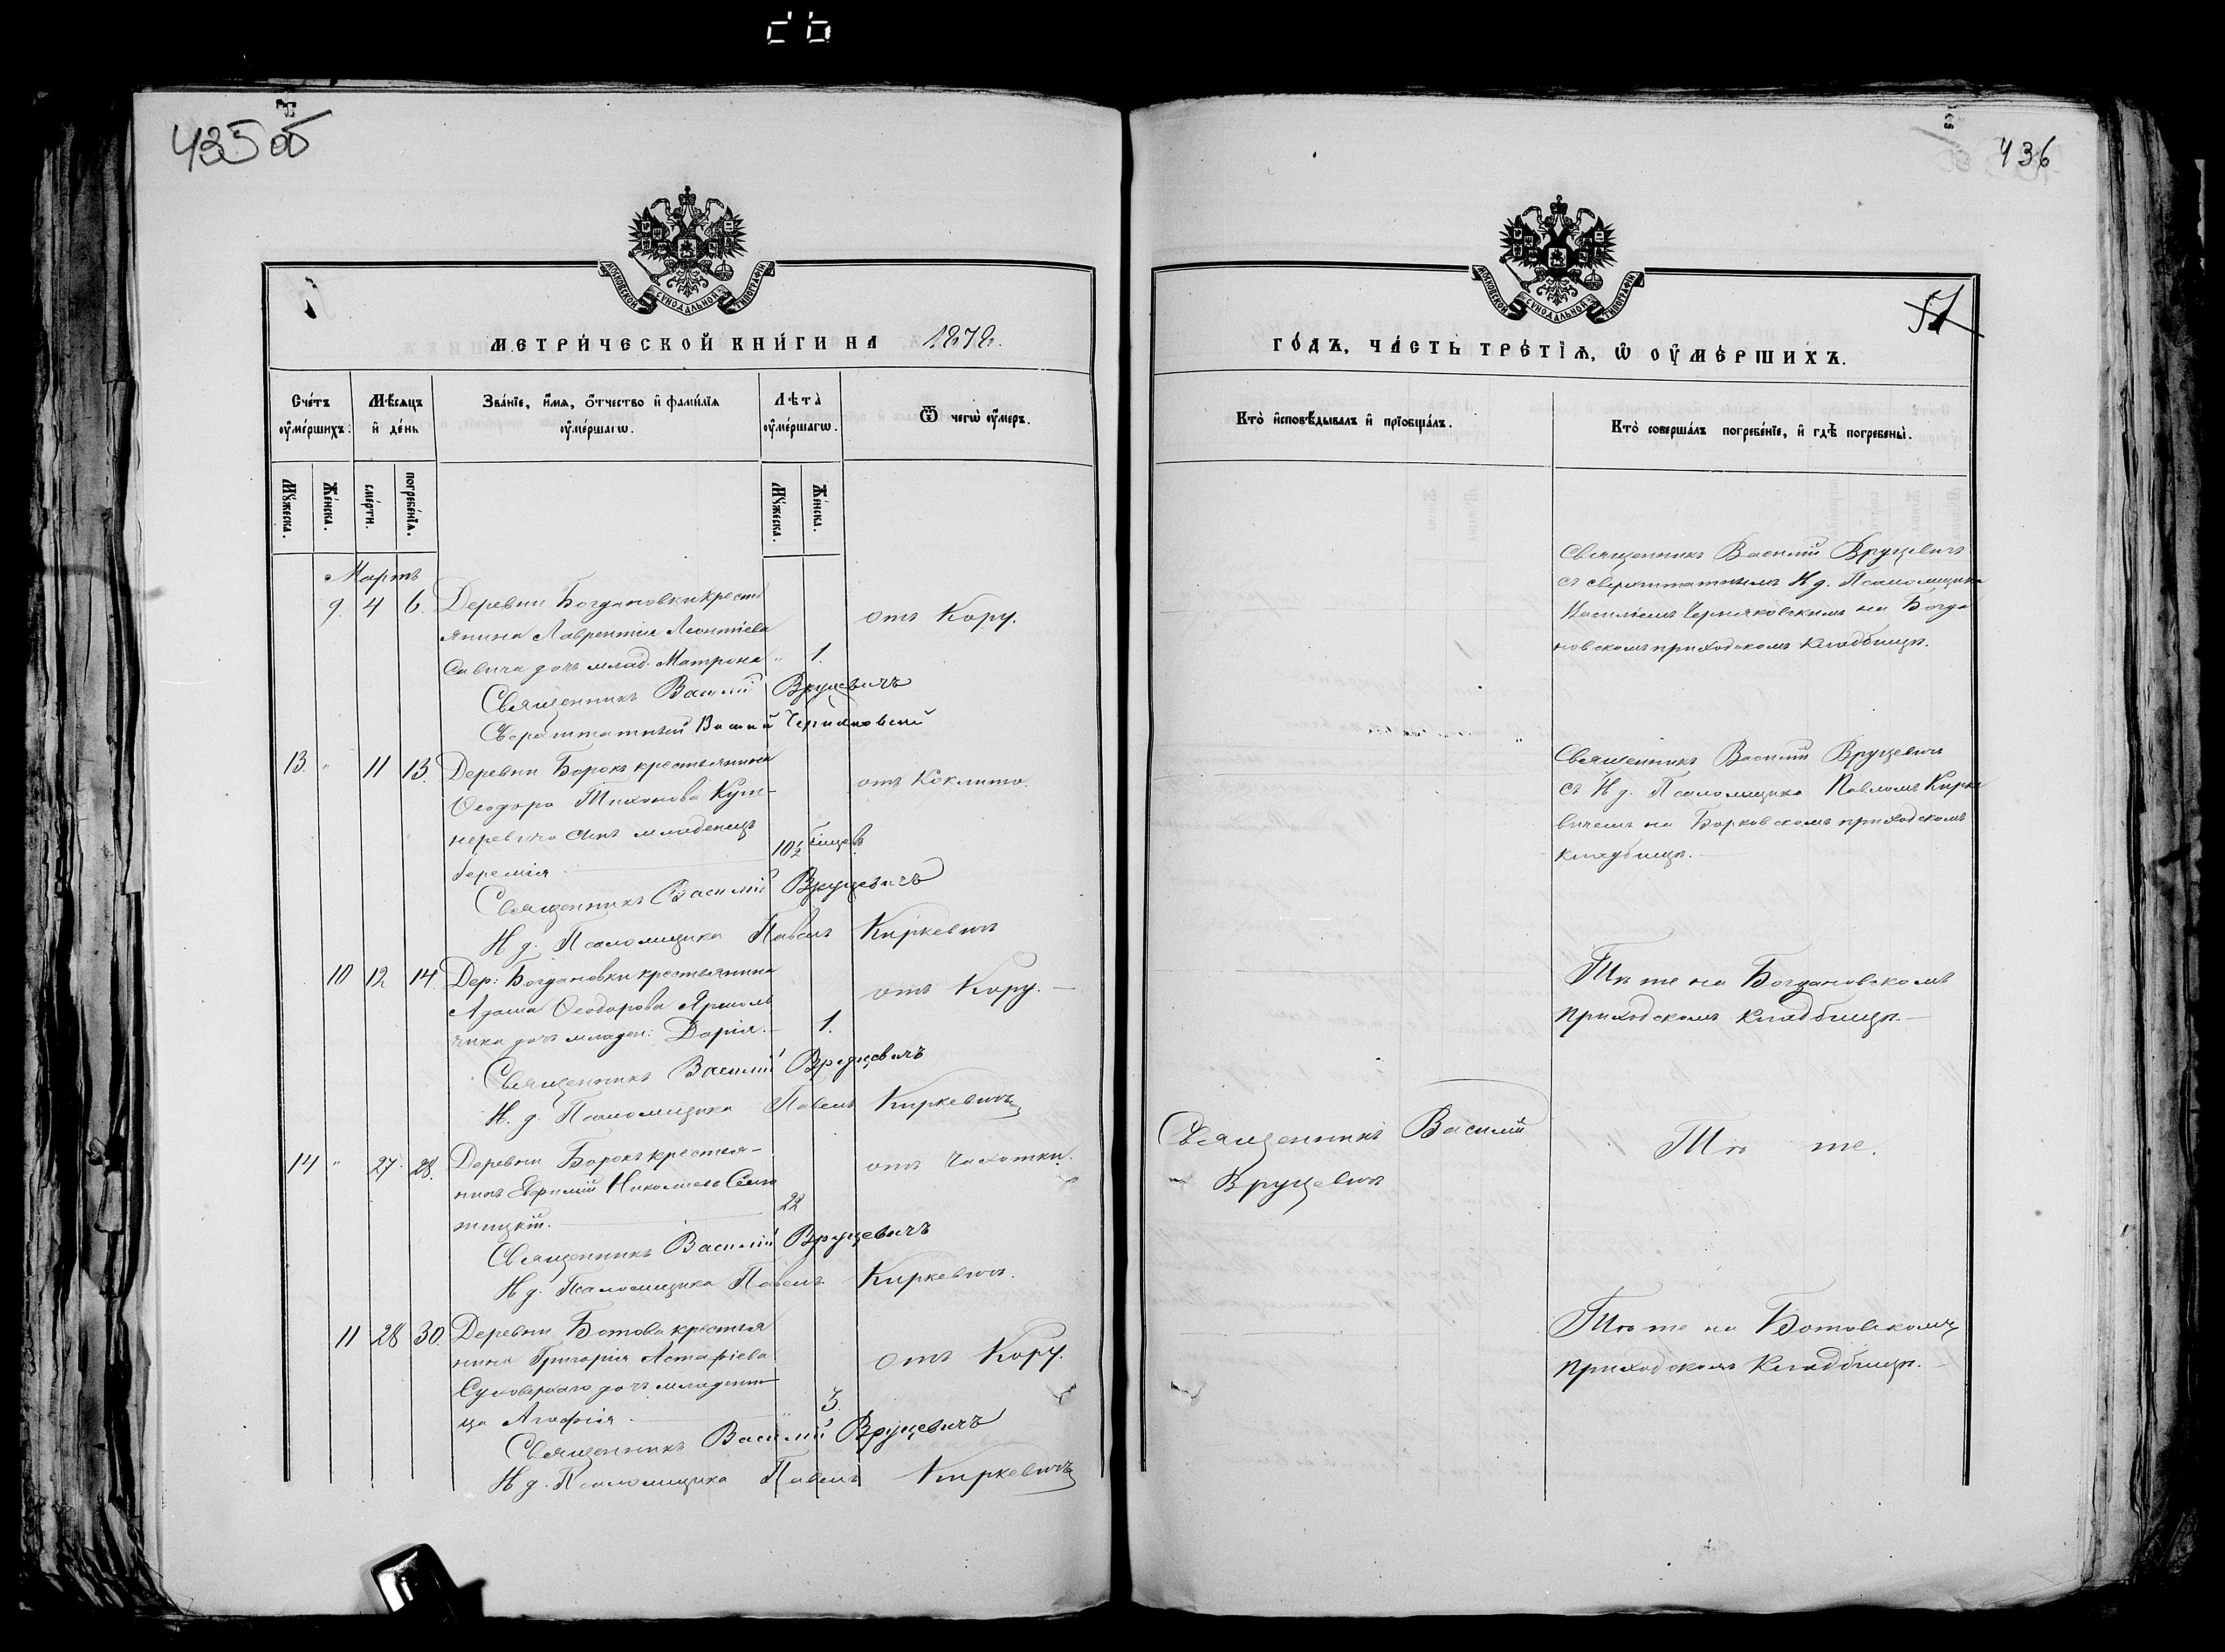 435 об
436
МОСКОВСКОЙ СѴНОДАЛЬНОЙ ТИПОГРАФІИ
МЕТРИ́ЧЕСКОЙ КНИ́ГИ НА 1872.
Сче́тъ ᲂу҆ме́ршихъ:
Мѣ́сяцъ и҆ де́нь
Зва́нїе, и҆́мѧ, ѻ҆́тчество и҆ фами́лїѧ ᲂу҆ме́ршагѡ.
Лѣта̀ ᲂу҆ме́ршагѡ.
Ѿ чегѡ̀ ᲂу҆́меръ.
Мꙋ́жеска.
Же́нска.
сме́рти.
погребе́нїѧ.
Мꙋ́жеска.
Же́нска.
Мартъ
9. 4 6. Деревни Богдановки кресть
янина Лаврентія Леонтіева
Савича дочь млад. Матрона " 1.
отъ Кору.
Священникъ Василій Вруцевичъ
Сверхштатный Василій Черняковскій
13. " 11 13. Деревни Борокъ крестьянина
Ѳеодора Тихонова Куш-
неревича сынъ младенецъ
Іеремія 10½
отъ Коклюша.
Священникъ Василій Вруцевичъ
И д. Псаломщика Павелъ Киркевичъ
10 12 14. Дер: Богдановки крестьянина
Адама Ѳеодорова Ярмоль
чика дочь младен: Дарія. 1.
отъ Кору.
Священникъ Василій Вруцевичъ
И. д. Псаломщика Павелъ Киркевичъ
14 " 27. 28. Деревни Борокъ крестья-
нинъ Николаевъ
22
отъ Чахотки.
Священникъ Василій Вруцевичъ
И д. Псаломщика Павелъ Киркевичъ.
11 28 30. Деревни Ботова крестья
нина Григорія Астафіева
Суховерхаго дочь младени-
ца Агафія " 3.
отъ Кору.
Священникъ Василій Вруцевичъ
И д. Псаломщика Павелъ Киркевичъ
МОСКОВСКОЙ СѴНОДАЛЬНОЙ ТИПОГРАФІИ
51
ГО́ДЪ, ЧА́СТЬ ТРЕ́ТЇѦ, Ѡ҆ ОУ҆МЕ́РШИХЪ.
Кто̀ и҆сповѣ́дывалъ и҆ прїобща́лъ.
Кто̀ соверша́лъ погребе́нїе, и҆ гдѣ̀ погребены̀.
Священникъ Василій Вруцевичъ
съ сверхштатнымъ И д. Псаломщика
Василіемъ Черняковскимъ на Богда
новскомъ приходскомъ кладбищѣ.
Священникъ Василій Вруцевичъ
съ И д. Псаломщика Павломъ Кирке
вичемъ на Борковскомъ приходскомъ
кладбищѣ.
Тѣ же на Богдановскомъ
приходскомъ кладбищѣ.
Священникъ Василій
Вруцевичъ
Тѣ же.
Тѣ же на Ботовскомъ
приходскомъ Кладбищѣ.